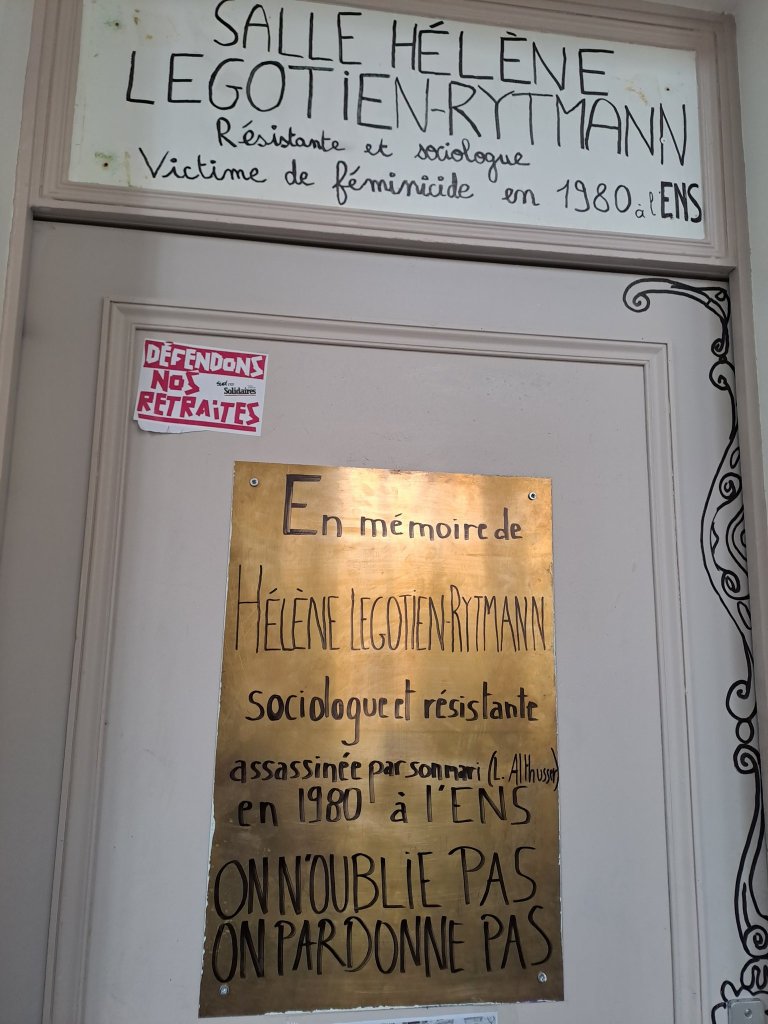 SALLE HÉLÈNE
LEGOTIEN-RYTMANN
Résistante et sociologue
Victime de féminicide en 1980 à l'ENS
DÉFENDONS
NOS
Solidaires
RETRAITES
En mémoire de
HÉLÈNE LEGOTIEN-RYTMANN
sociologue et résistante
assassinée par son mari (L. Althusser)
en 1980 à l'ENS
ON N'OUBLIE PAS
ON PARDONNE PAS